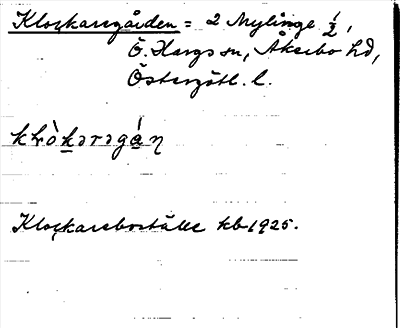 Klockaregården = 2 Mylinge 1/2,
Ö. Hargs sn, Åkerbo hd,
Östergötl. l.
Klockareboställe kb 1925.